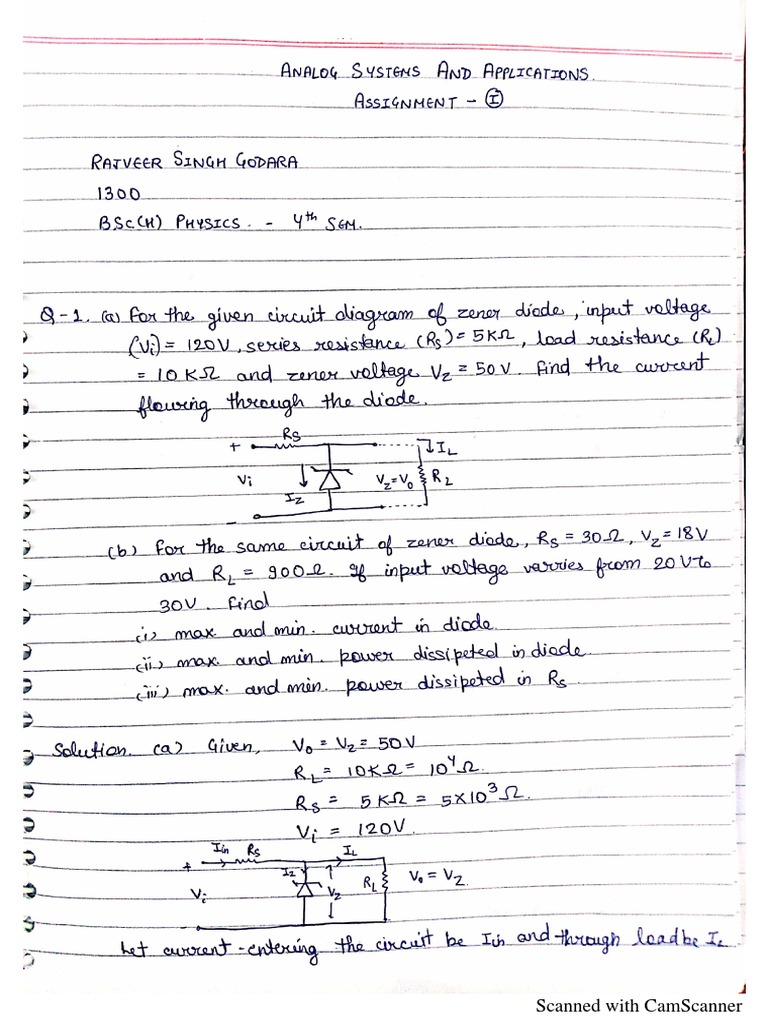 ANALOG SYSTEMS AND APPLICATIONS.
ASSIGNMENT - I
RAJVEER SINGH GODARA
1300
BSC(H) PHYSICS. - 4th SEM.
Q-1. (a) For the given circuit diagram of zener diode, input voltage
(Vi) = 120V, series resistance (Rs) = 5KΩ, load resistance (RL)
= 10 KΩ and zener voltage Vz = 50V. Find the current
flowing through the diode.
+ Rs IL
Vi Iz Vz=Vo RL
-
(b) For the same circuit of zener diode, Rs = 30Ω, Vz = 18V
and RL = 900Ω. If input voltage varries from 20V to
30V. Find
(i) max and min. current in diode.
(ii) max. and min. power dissipeted in diode.
(iii) max. and min. power dissipeted in Rs
Solution. (a) Given, Vo = Vz = 50V
RL = 10KΩ = 10⁴Ω.
Rs = 5KΩ = 5×10³Ω.
Vi = 120V.
+ Iin Rs IL
Vi Iz Vz RL Vo = Vz
-
Let current-entering the circuit be Iin and through load be IL
Scanned with CamScanner